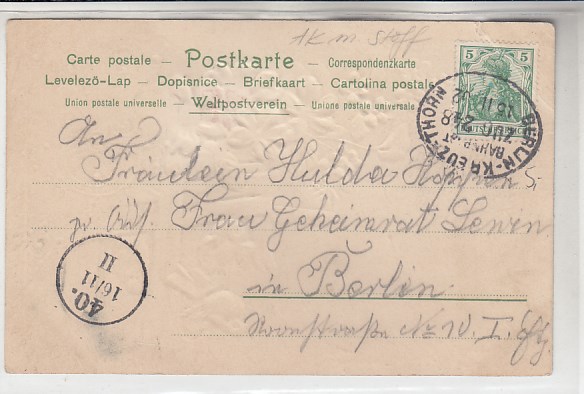 AK m. Stoff
Carte postale — Postkarte — Correspondenzkarte
Levelező-Lap — Dopisnice — Briefkaart — Cartolina postale
Union postale universelle — Weltpostverein — Unione postale universale
5 5
BERLIN-KREUZ-THORN
BAHNPOST
ZUG 248
An
Fräulein Hulda
Frau Geheimrat Lewin
in Berlin.
Roonstraße No 10. I.
40.
16/11
II